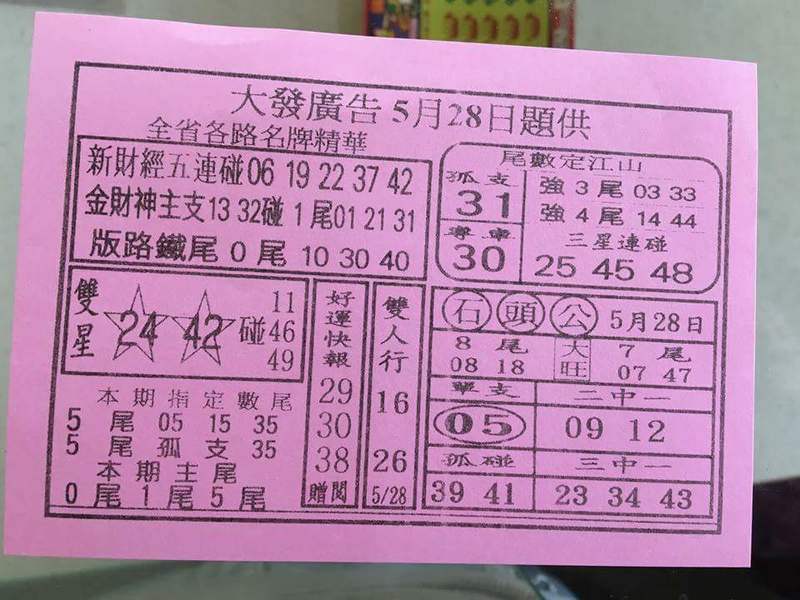 大發廣告 5月28日題供
全省各路名牌精華
新財經五連碰 06 19 22 37 42
金財神主支 13 32碰 1 尾 01 21 31
版路鐵尾 0 尾 10 30 40
尾數定江山
孤支
31
專車
30
強 3 尾 03 33
強 4 尾 14 44
三星連碰
25 45 48
雙星
24 42 碰
11
46
49
本期指定數尾
5 尾 05 15 35
5 尾 孤支 35
本期主尾
0 尾 1 尾 5 尾
好運快報
29
30
38
贈閱
雙人行
16
26
5/28
石頭公 5月28日
8 尾
08 18
大旺
7 尾
07 47
單支
05
二中一
09 12
孤碰
39 41
三中一
23 34 43